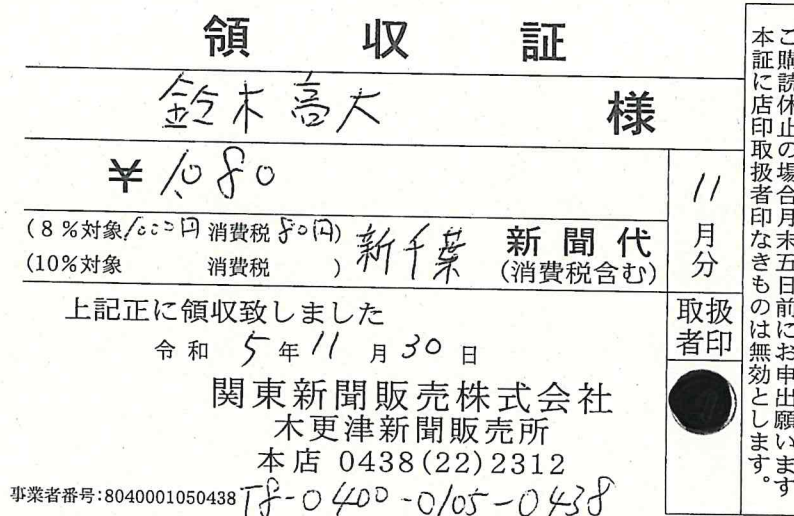 領収証
鈴木高大 様
¥1,080
11月分
(8%対象1000円 消費税80円)
(10%対象 消費税 )
新千葉 新聞代
(消費税含む)
上記正に領収致しました
令和5年11月30日
取扱者印
関東新聞販売株式会社
木更津新聞販売所
本店 0438(22)2312
事業者番号:8040001050438 T8-0400-0105-0438
ご購読休止の場合月末五日前にお申出願います
本証に店印取扱者印なきものは無効とします。